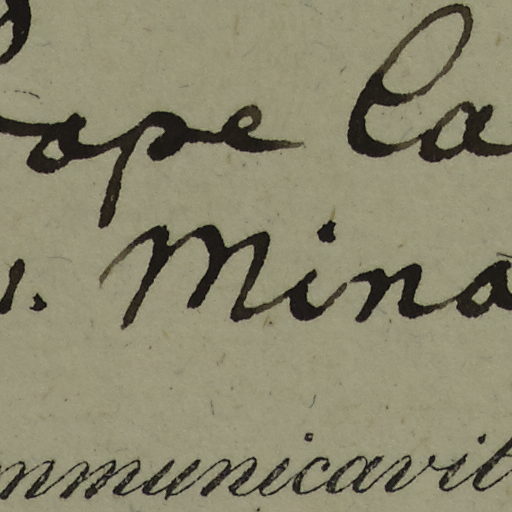 ape Ca
. Mina
mmunicavit